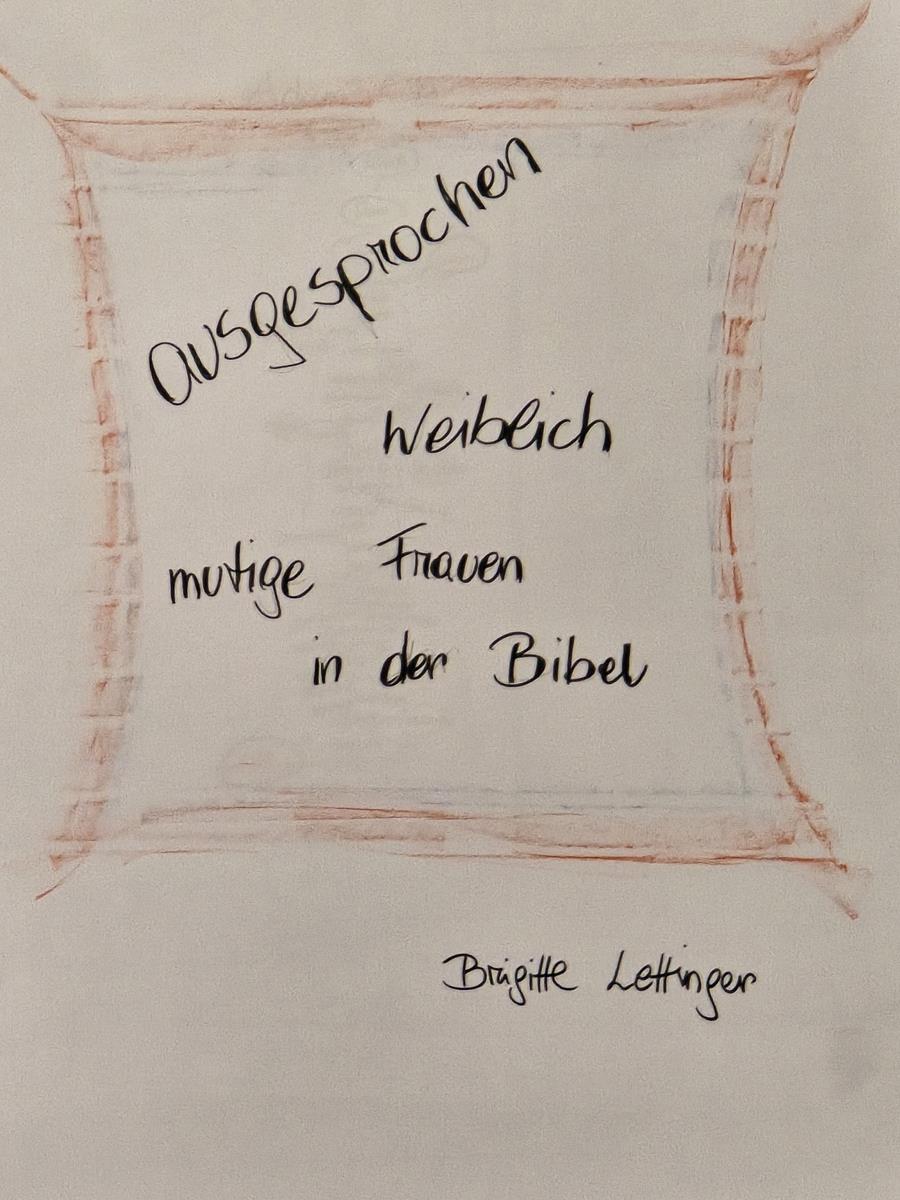 ausgesprochen
Weiblich
mutige Frauen
in der Bibel
Brigitte Lettinger